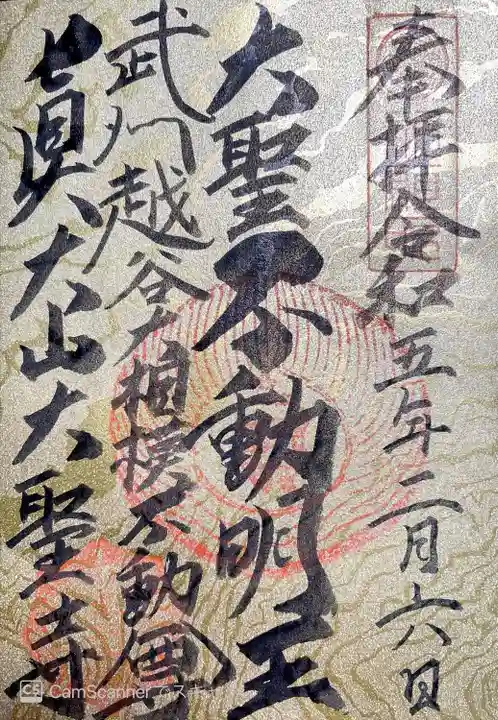 奉拝令和五年二月六日
大聖不動明王
武州越谷大相模不動尊
真大山大聖寺
CamScanner でスキャン